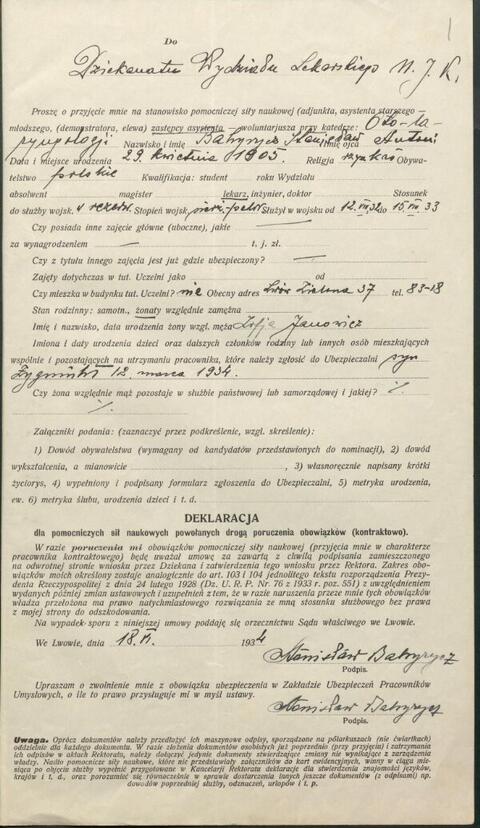 1
Do
Dziekanatu Wydziału Lekarskiego U. J. K.
Proszę o przyjęcie mnie na stanowisko pomocniczej siły naukowej (adjunkta, asystenta starszego —
młodszego, (demonstratora, elewa) zastępcy asystenta — woluntarjusza przy katedrze: Oto-la-
ryngologji Nazwisko i imię Batyrycz Stanisław Imię ojca Antoni
Data i miejsce urodzenia 29 kwietnia 1905. Religja rzym kat Obywa-
telstwo polskie Kwalifikacja: student roku Wydziału
absolwent magister lekarz, inżynier, doktor Stosunek
do służby wojsk. w rezerw. Stopień wojsk. Służył w wojsku od 12.VII.32 do 15.VII.33
Czy posiada inne zajęcie główne (uboczne), jakie —
za wynagrodzeniem — t. j. zł.
Czy z tytułu innego zajęcia jest już gdzie ubezpieczony? —
Zajęty dotychczas w tut. Uczelni jako od
Czy mieszka w budynku tut. Uczelni? nie Obecny adres Lwów Zielona 37 tel. 83-18
Stan rodzinny: samotn., żonaty względnie zamężna
Imię i nazwisko, data urodzenia żony wzgl. męża Zofja Janowicz
Imiona i daty urodzenia dzieci oraz dalszych członków rodziny lub innych osób mieszkających
wspólnie i pozostających na utrzymaniu pracownika, które należy zgłosić do Ubezpieczalni syn
Zygmunt 12. marca 1934.
Czy żona względnie mąż pozostaje w służbie państwowej lub samorządowej i jakiej? %
%
Załączniki podania: (zaznaczyć przez podkreślenie, wzgl. skreślenie):
1) Dowód obywatelstwa (wymagany od kandydatów przedstawionych do nominacji), 2) dowód
wykształcenia, a mianowicie , 3) własnoręcznie napisany krótki
życiorys, 4) wypełniony i podpisany formularz zgłoszenia do Ubezpieczalni, 5) metryka urodzenia,
ew. 6) metryka ślubu, urodzenia dzieci i t. d.
DEKLARACJA
dla pomocniczych sił naukowych powołanych drogą poruczenia obowiązków (kontraktowo).
W razie poruczenia mi obowiązków pomocniczej siły naukowej (przyjęcia mnie w charakterze
pracownika kontraktowego) będę uważał umowę za zawartą z chwilą podpisania zamieszczonego
na odwrotnej stronie wniosku przez Dziekana i zatwierdzenia tego wniosku przez Rektora. Zakres obo-
wiązków moich określony zostaje analogicznie do art. 103 i 104 jednolitego tekstu rozporządzenia Prezy-
denta Rzeczypospolitej z dnia 24 lutego 1928 (Dz. U. R. P. Nr. 76 z 1933 r. poz. 551) z uwzględnieniem
wydanych później zmian ustawowych i uzupełnień z tem, że w razie naruszenia przeze mnie tych obowiązków
władza przełożona ma prawo natychmiastowego rozwiązania ze mną stosunku służbowego bez prawa
z mojej strony do odszkodowania.
Na wypadek sporu z niniejszej umowy poddaję się orzecznictwu Sądu właściwego we Lwowie.
We Lwowie, dnia 18.VI. 1934
Stanisław Batyrycz
Podpis.
Upraszam o zwolnienie mnie z obowiązku ubezpieczenia w Zakładzie Ubezpieczeń Pracowników
Umysłowych, o ile to prawo przysługuje mi w myśl ustawy.
Stanisław Batyrycz
Podpis.
Uwaga. Oprócz dokumentów należy przedłożyć ich maszynowe odpisy, sporządzone na półarkuszach (nie ćwiartkach)
oddzielnie dla każdego dokumentu. W razie złożenia dokumentów osobistych już poprzednio (przy przyjęciu) i zatrzymania
ich odpisów w aktach Rektoratu, należy dołączyć jedynie dokumenty stwierdzające zmiany nie wynikające z zarządzenia
władzy. Nadto pomocnicze siły naukowe, które nie przedstawiały załączników do kart ewidencyjnych, winny w ciągu mie-
siąca po objęciu służby wypełnić przygotowane w Kancelarji Rektoratu deklaracje dla stwierdzenia znajomości języków,
krajów i t. d., oraz porozumieć się równocześnie w sprawie dostarczenia innych jeszcze dokumentów (z odpisami) np.
dowodów poprzedniej służby, odznaczeń, urlopów i t. p.